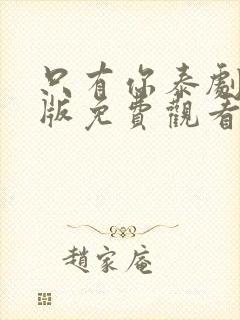 只有你泰劇
版免費觀看
趙家庵